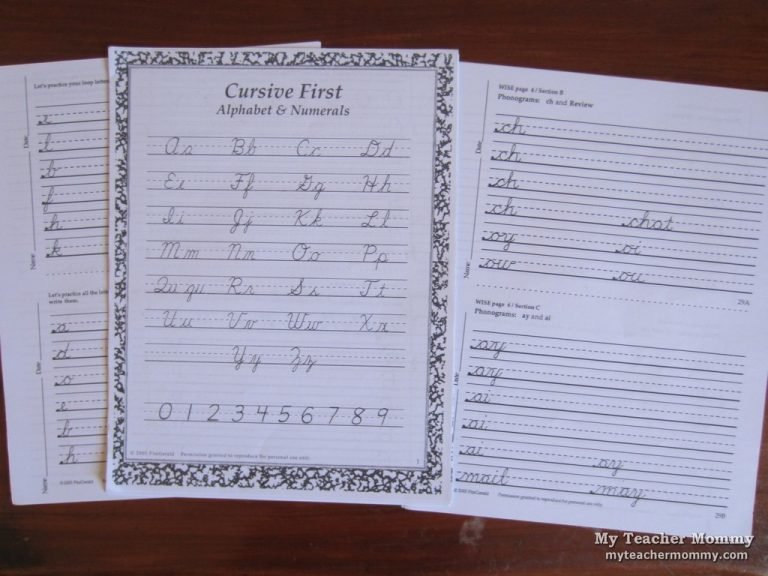 Let's practice your loop letters
Date
Name
l
b
f
h
k
Let's practice all the lette
write them.
Date
Name
a
d
o
e
b
h
© 2005 FitzGerald
Cursive First
Alphabet & Numerals
Aa Bb Cc Dd
Ee Ff Gg Hh
Ii Jj Kk Ll
Mm Nn Oo Pp
Qu qu Rr Ss Tt
Uu Vv Ww Xx
Yy Zz
0 1 2 3 4 5 6 7 8 9
© 2005 FitzGerald Permission granted to reproduce for personal use only.
1
WISE page 4 / Section B
Phonograms: ch and Review
Date
Name
ch
ch
ch
ch chat
oy oi
ow ou
29A
WISE page 4 / Section C
Phonograms: ay and ai
Date
Name
ay
ay
ai
ai
ai ay
mail may
© 2005 FitzGerald Permission granted to reproduce for personal use only.
29B
My Teacher Mommy
myteachermommy.com